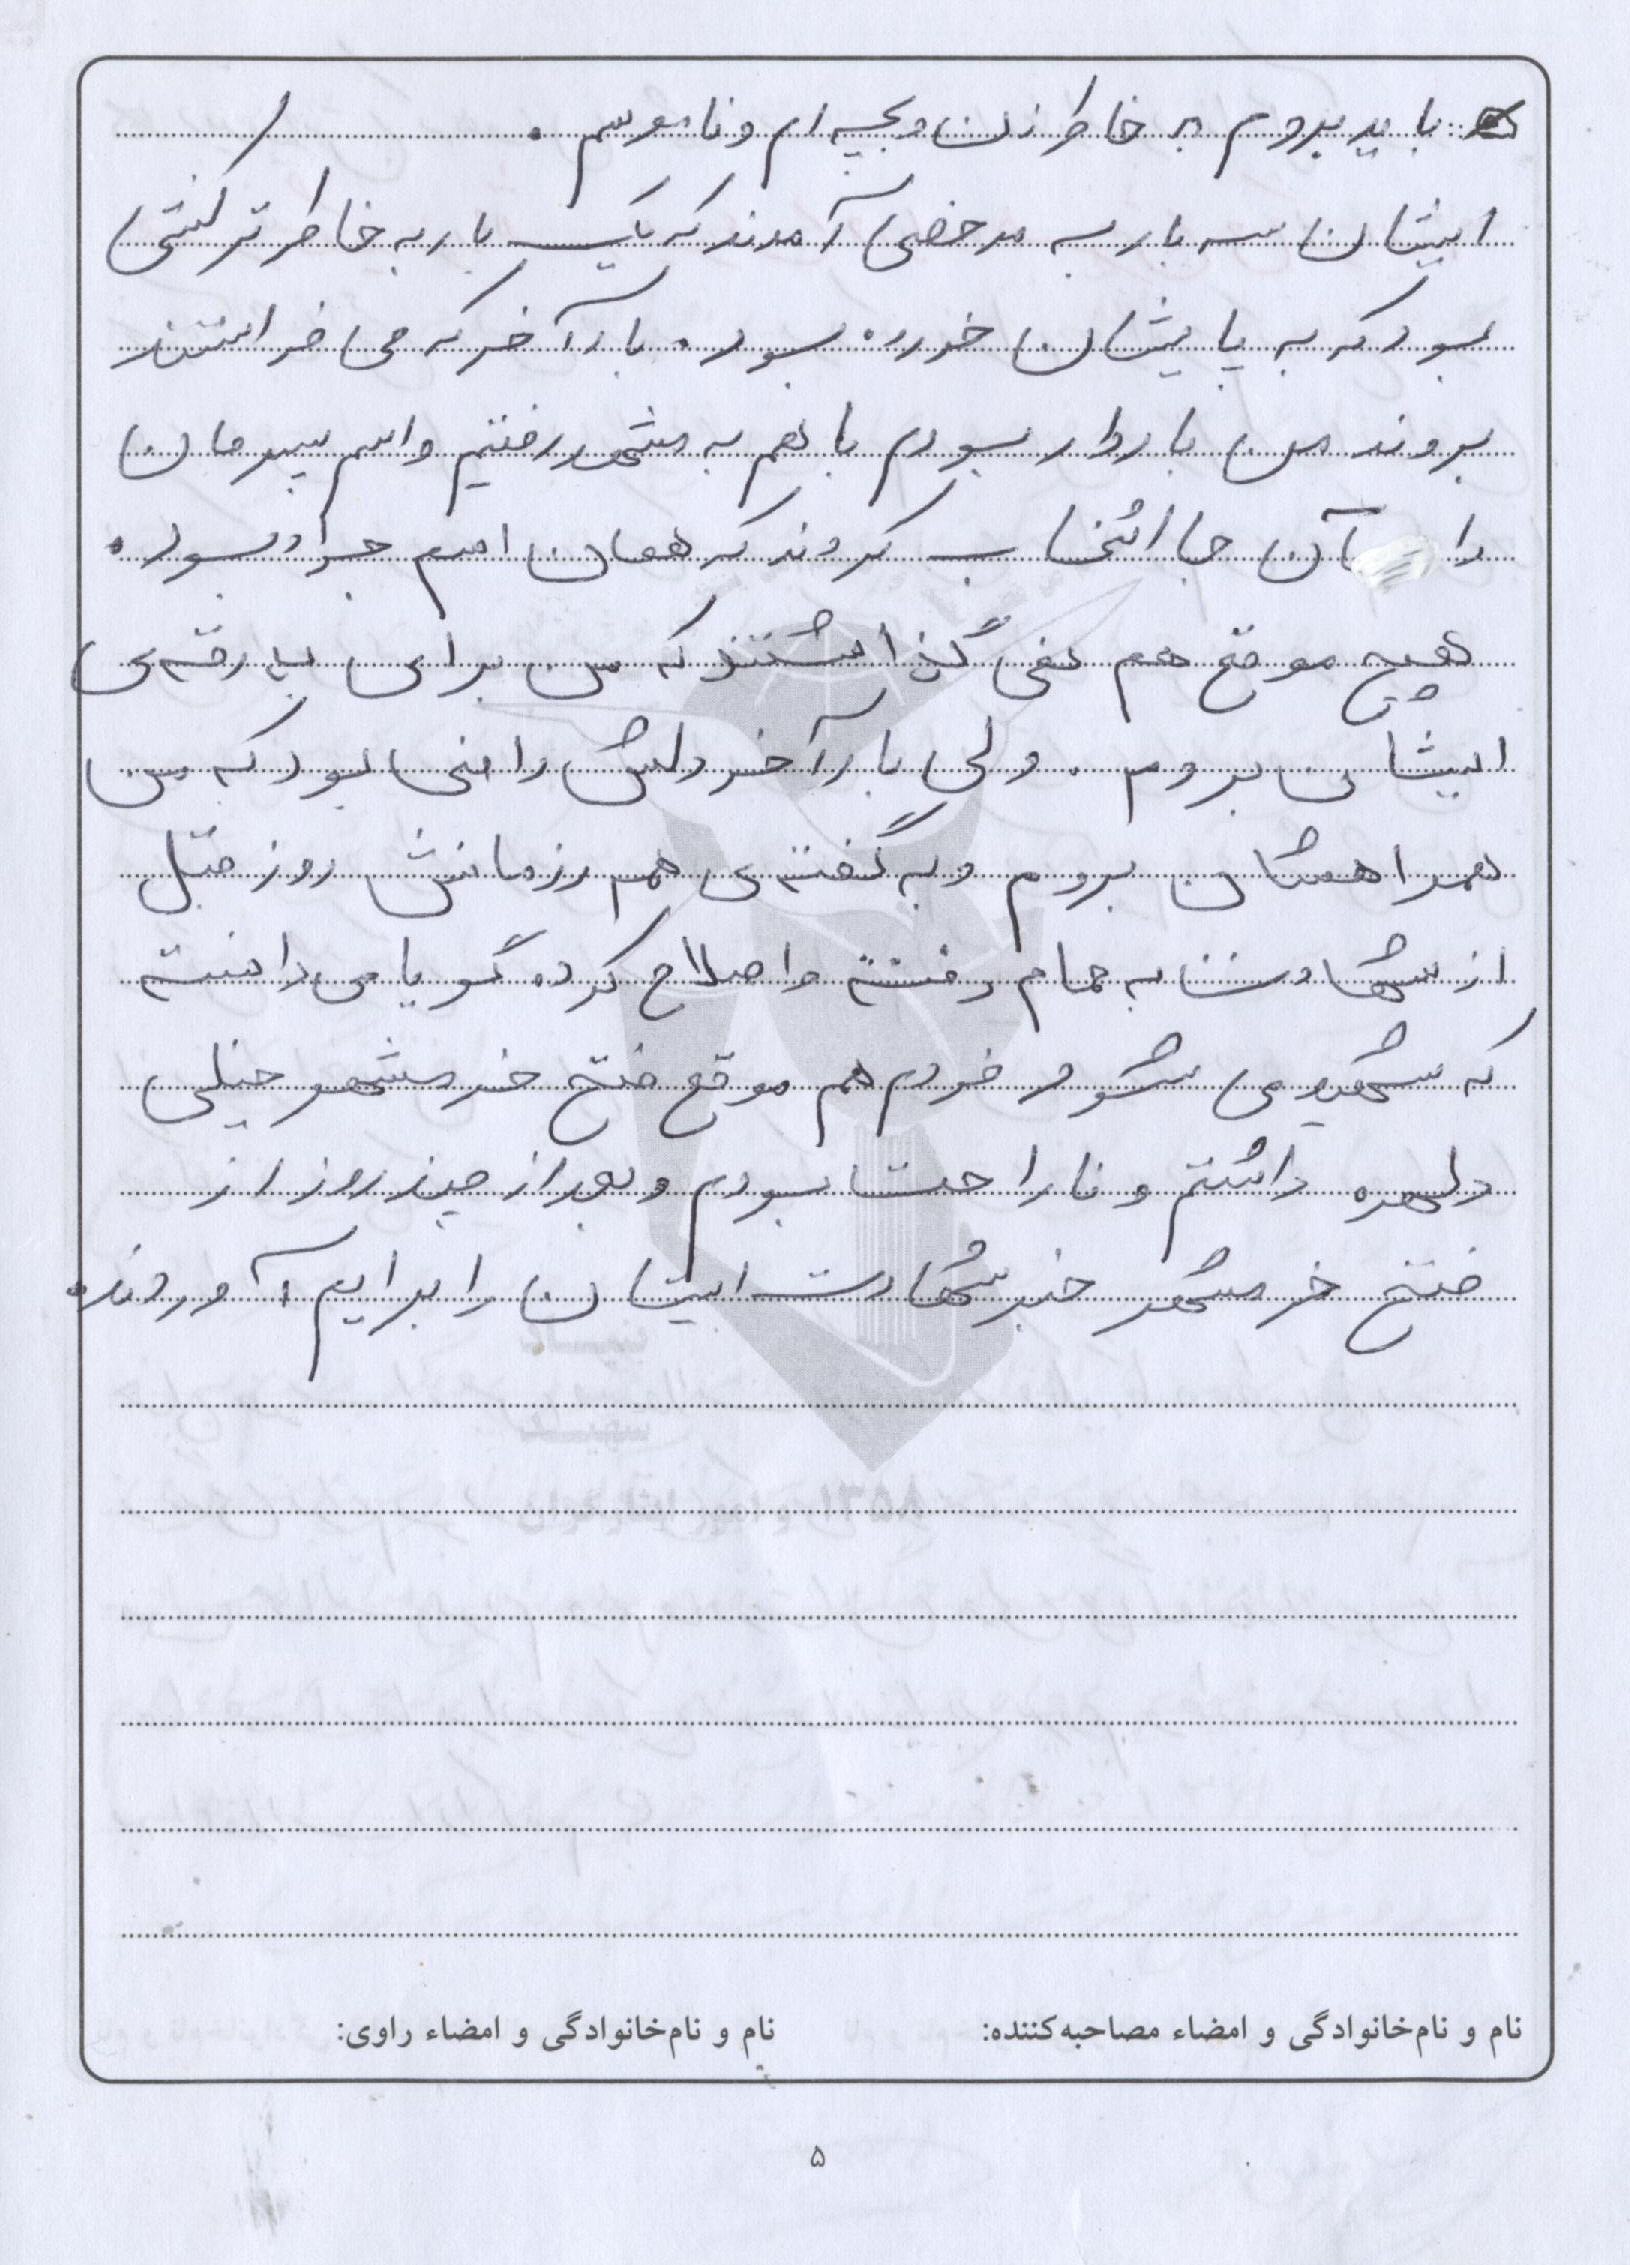 باید بروم به خاطر زن و بچه ام و ناموسم .
ایشان سه بار به مرخصی آمدند که یک بار به خاطر ترکشی
بود که به پایشان خورده بود . بار آخر که می خواستند
بروند من باردار بودم با هم به مشهد رفتیم و اسم پسرمان
را آن جا انتخاب کردند که همان اسم جواد بود .
هیچ موقع هم نمی گذاشتند که من برای بدرقه ی
ایشان بروم . ولی بار آخر دلش راضی بود که من
همراهشان بروم و به گفته ی هم رزمانش روز قبل
از شهادت به حمام رفته و اصلاح کرده گویا می دانسته
که شهید می شود خودم هم موقع فتح خرمشهر خیلی
دلهره داشتم و ناراحت بودم و بعد از چند روز از
فتح خرمشهر خبر شهادت ایشان را برایم آوردند .
نام و نام‌خانوادگی و امضاء مصاحبه‌کننده: نام و نام‌خانوادگی و امضاء راوی:
۵